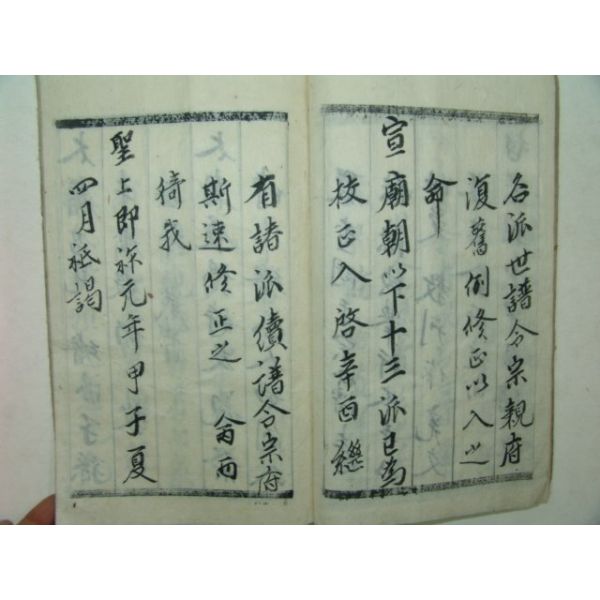 各派世譜令宗親府
復舊例修正以入之
命
宣廟朝以下十三派已爲
校正入啓辛酉繼
有諸派續譜令宗府
斯速修正之
猗我
聖上即祚元年甲子夏
四月祗謁